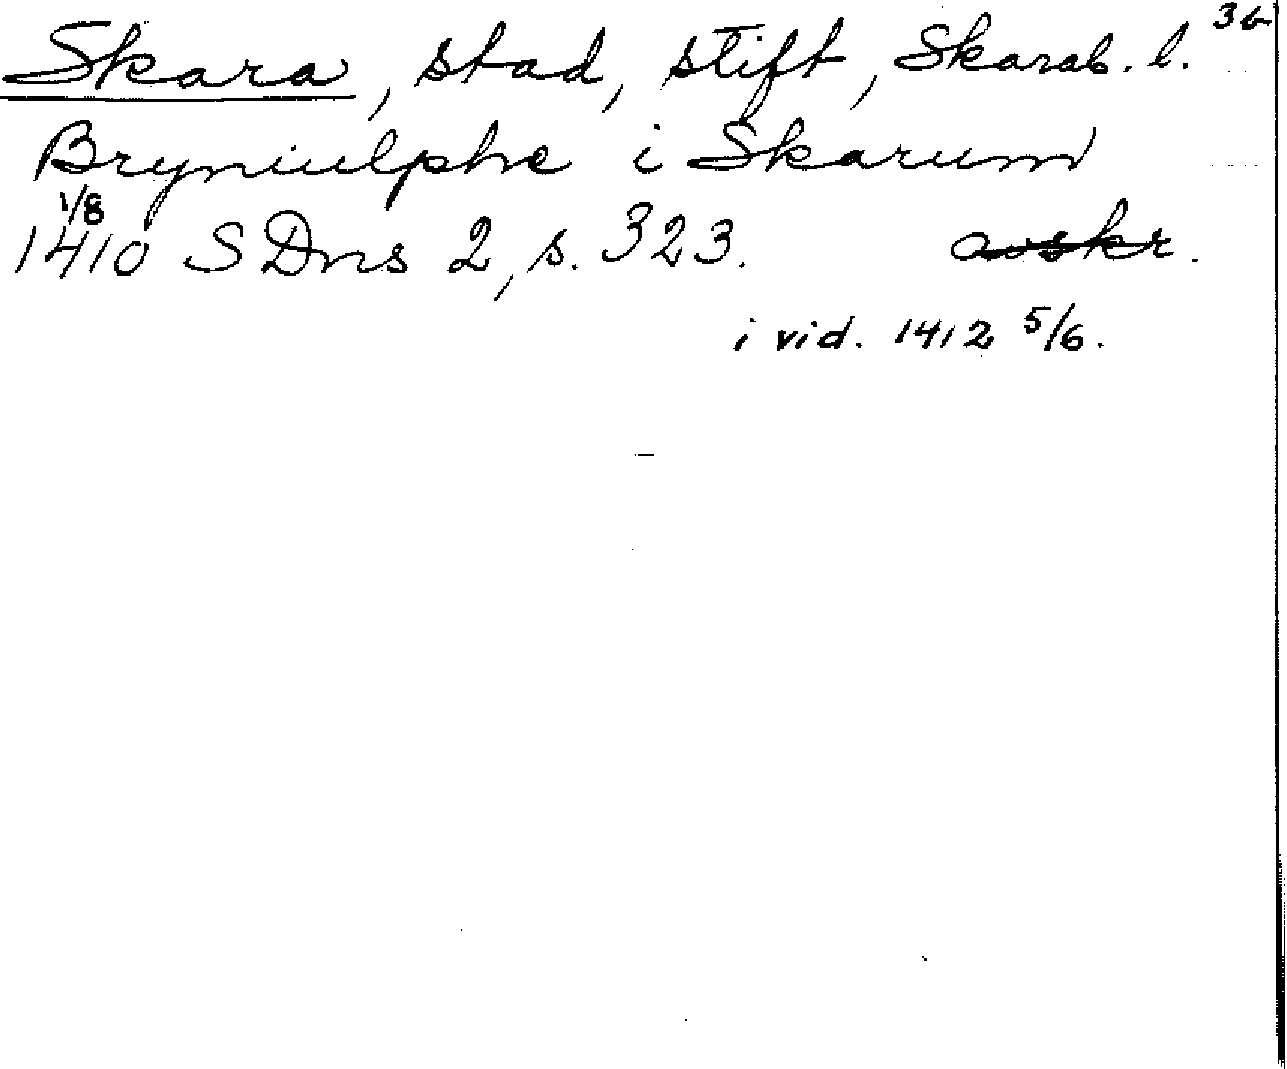 36
Skara, stad, stift, Skarab. l.
Bryniulphe i Skarum
1/8
1410 SDns 2, s. 323. avskr.
i vid. 1412 5/6.